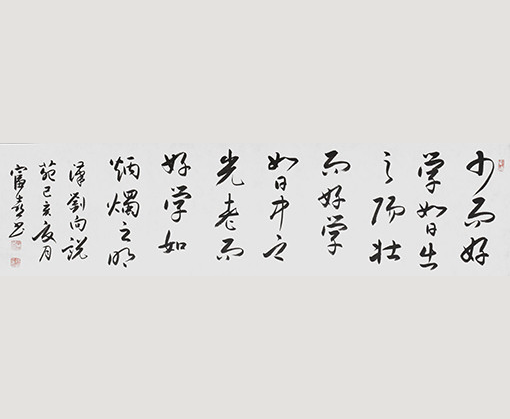 少而好
学如日出
之阳壮
而好学
如日中之
光老而
好学如
炳烛之明
汉刘向说
苑己亥夏月
富春书